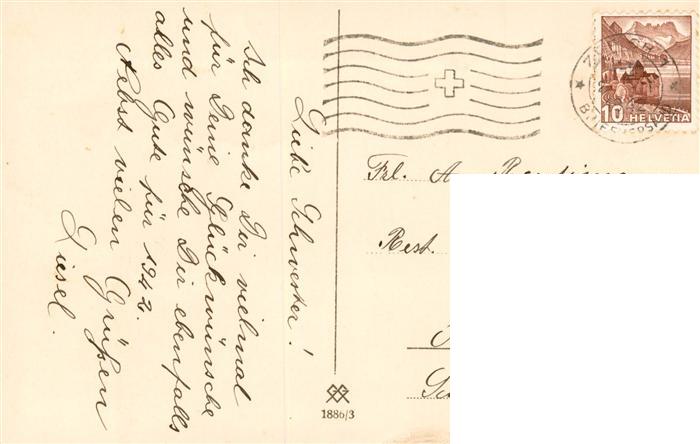 Liebe Schwester!
Ich danke Dir vielmal
für Deine Glückwünsche
und wünsche Dir ebenfalls
alles Gute für 1942.
Nebst vielen Grüßen
Liesel.
Frl. A.
Rest.
10 HELVETIA
1886/3